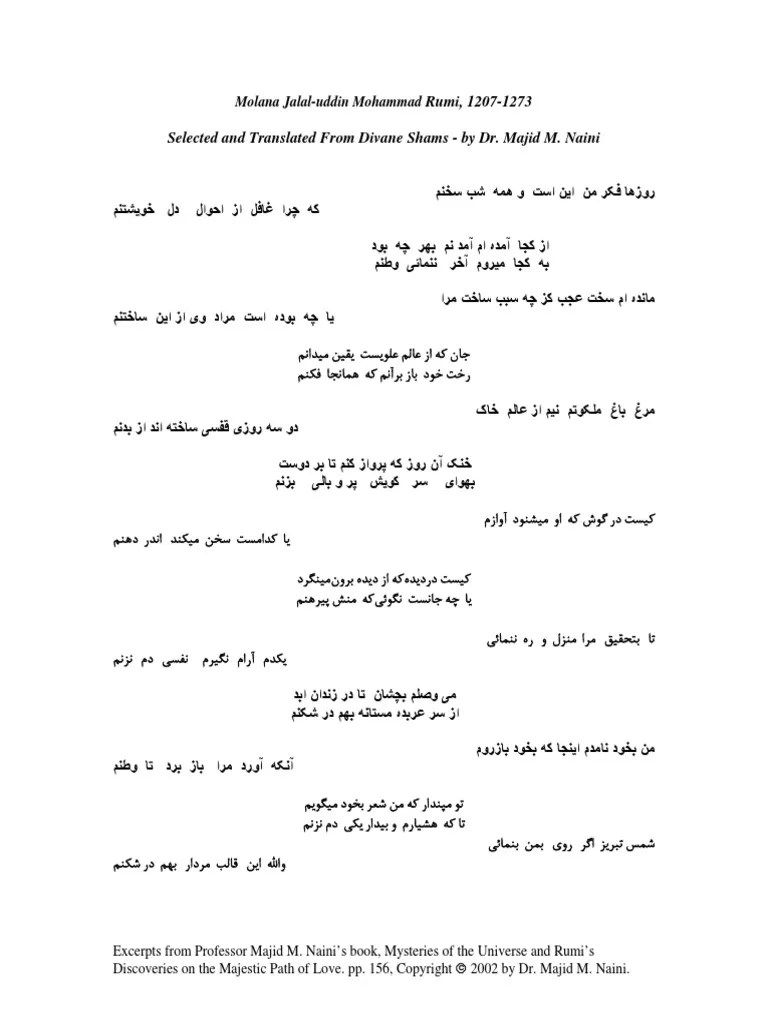 Molana Jalal-uddin Mohammad Rumi, 1207-1273
Selected and Translated From Divane Shams - by Dr. Majid M. Naini
روزها فکر من این است و همه شب سخنم
که چرا غافل از احوال دل خویشتنم
از کجا آمده ام آمد نم بهر چه بود
به کجا میروم آخر ننمائی وطنم
مانده ام سخت عجب کز چه سبب ساخت مرا
یا چه بوده است مراد وی از این ساختنم
جان که از عالم علویست یقین میدانم
رخت خود باز برآنم که همانجا فکنم
مرغ باغ ملکوتم نیم از عالم خاک
دو سه روزی قفسی ساخته اند از بدنم
خنک آن روز که پرواز کنم تا بر دوست
بهوای سر کویش پر و بالی بزنم
کیست در گوش که او میشنود آوازم
یا کدامست سخن میکند اندر دهنم
کیست دردیده که از دیده برون مینگرد
یا چه جانست نگوئی که منش پیرهنم
تا بتحقیق مرا منزل و ره ننمائی
یکدم آرام نگیرم نفسی دم نزنم
می وصلم بچشان تا در زندان ابد
از سر عربده مستانه بهم در شکنم
من بخود نامدم اینجا که بخود بازروم
آنکه آورد مرا باز برد تا وطنم
تو مپندار که من شعر بخود میگویم
تا که هشیارم و بیدار یکی دم نزنم
شمس تبریز اگر روی بمن بنمائی
والله این قالب مردار بهم در شکنم
Excerpts from Professor Majid M. Naini's book, Mysteries of the Universe and Rumi's
Discoveries on the Majestic Path of Love. pp. 156, Copyright © 2002 by Dr. Majid M. Naini.